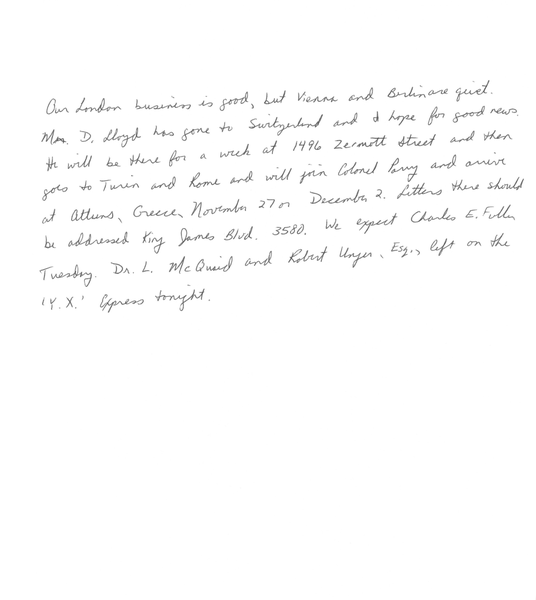 Our London business is good, but Vienna and Berlin are quiet.
D. Lloyd has gone to Switzerland and I hope for good news.
He will be there for a week at 1496 Zermott Street and then
goes to Turin and Rome and will join Colonel Parry and arrive
at Athens, Greece, November 27 or December 2. Letters there should
be addressed King James Blvd. 3580. We expect Charles E. Fuller
Tuesday. Dr. L. McQuaid and Robert Unger, Esq., left on the
'Y. X.' Express tonight.